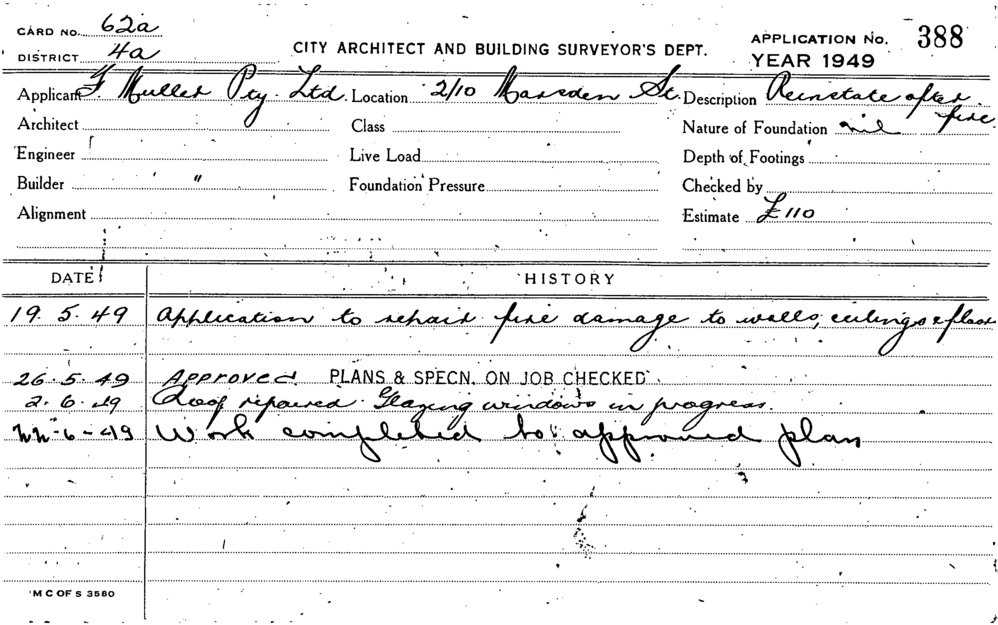 CARD NO. 62a
CITY ARCHITECT AND BUILDING SURVEYOR'S DEPT.
APPLICATION No. 388
DISTRICT 4a
YEAR 1949
Applicant F. Muller Pty. Ltd. Location 2/10 Marsden St. Description Reinstate after fire
Architect Class Nature of Foundation nil
Engineer Live Load Depth of Footings
Builder " Foundation Pressure Checked by
Alignment Estimate £110
DATE HISTORY
19.5.49 Application to repair fire damage to walls, ceilings & floor
26.5.49 Approved. PLANS & SPECN. ON JOB CHECKED.
2.6.49 Roof repaired. Glazing windows in progress.
22-6-49 Work completed to approved plan
M C OF S 3580